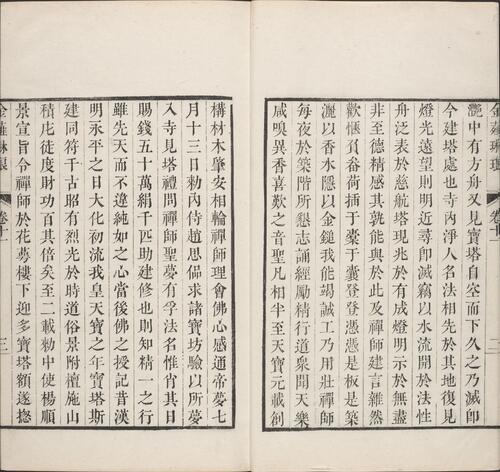 金薤琳琅 卷十一 二
灎中有方舟又見寶塔自空而下久之乃滅即
今建塔處也寺內淨人名法相先於其地復見
燈光遠望則明近尋即滅竊以水流開於法性
舟泛表於慈航塔現兆於有成燈明示於無盡
非至德精感其孰能與於此及禪師建言雜然
歡愜負畚荷插于橐于囊登登憑憑是板是築
灑以香水隱以金鎚我能竭誠工乃用壯禪師
每夜於築階所懇志誦經勵精行道衆聞天樂
咸嗅異香喜歎之音聖凡相半至天寶元載創
構材木肇安相輪禪師理會佛心感通帝夢七
月十三日勅內侍趙思偘求諸寶坊驗以所夢
入寺見塔禮問禪師聖夢有孚法名惟肖其日
賜錢五十萬絹千匹助建修也則知精一之行
雖先天而不違純如之心當後佛之授記昔漢
明永平之日大化初流我皇天寶之年寶塔斯
建同符千古昭有烈光於時道俗景附檀施山
積庀徒度財功百其倍矣至二載勅中使楊順
景宣旨令禪師於花萼樓下迎多寶塔額遂揔
金薤琳琅 卷十一 三